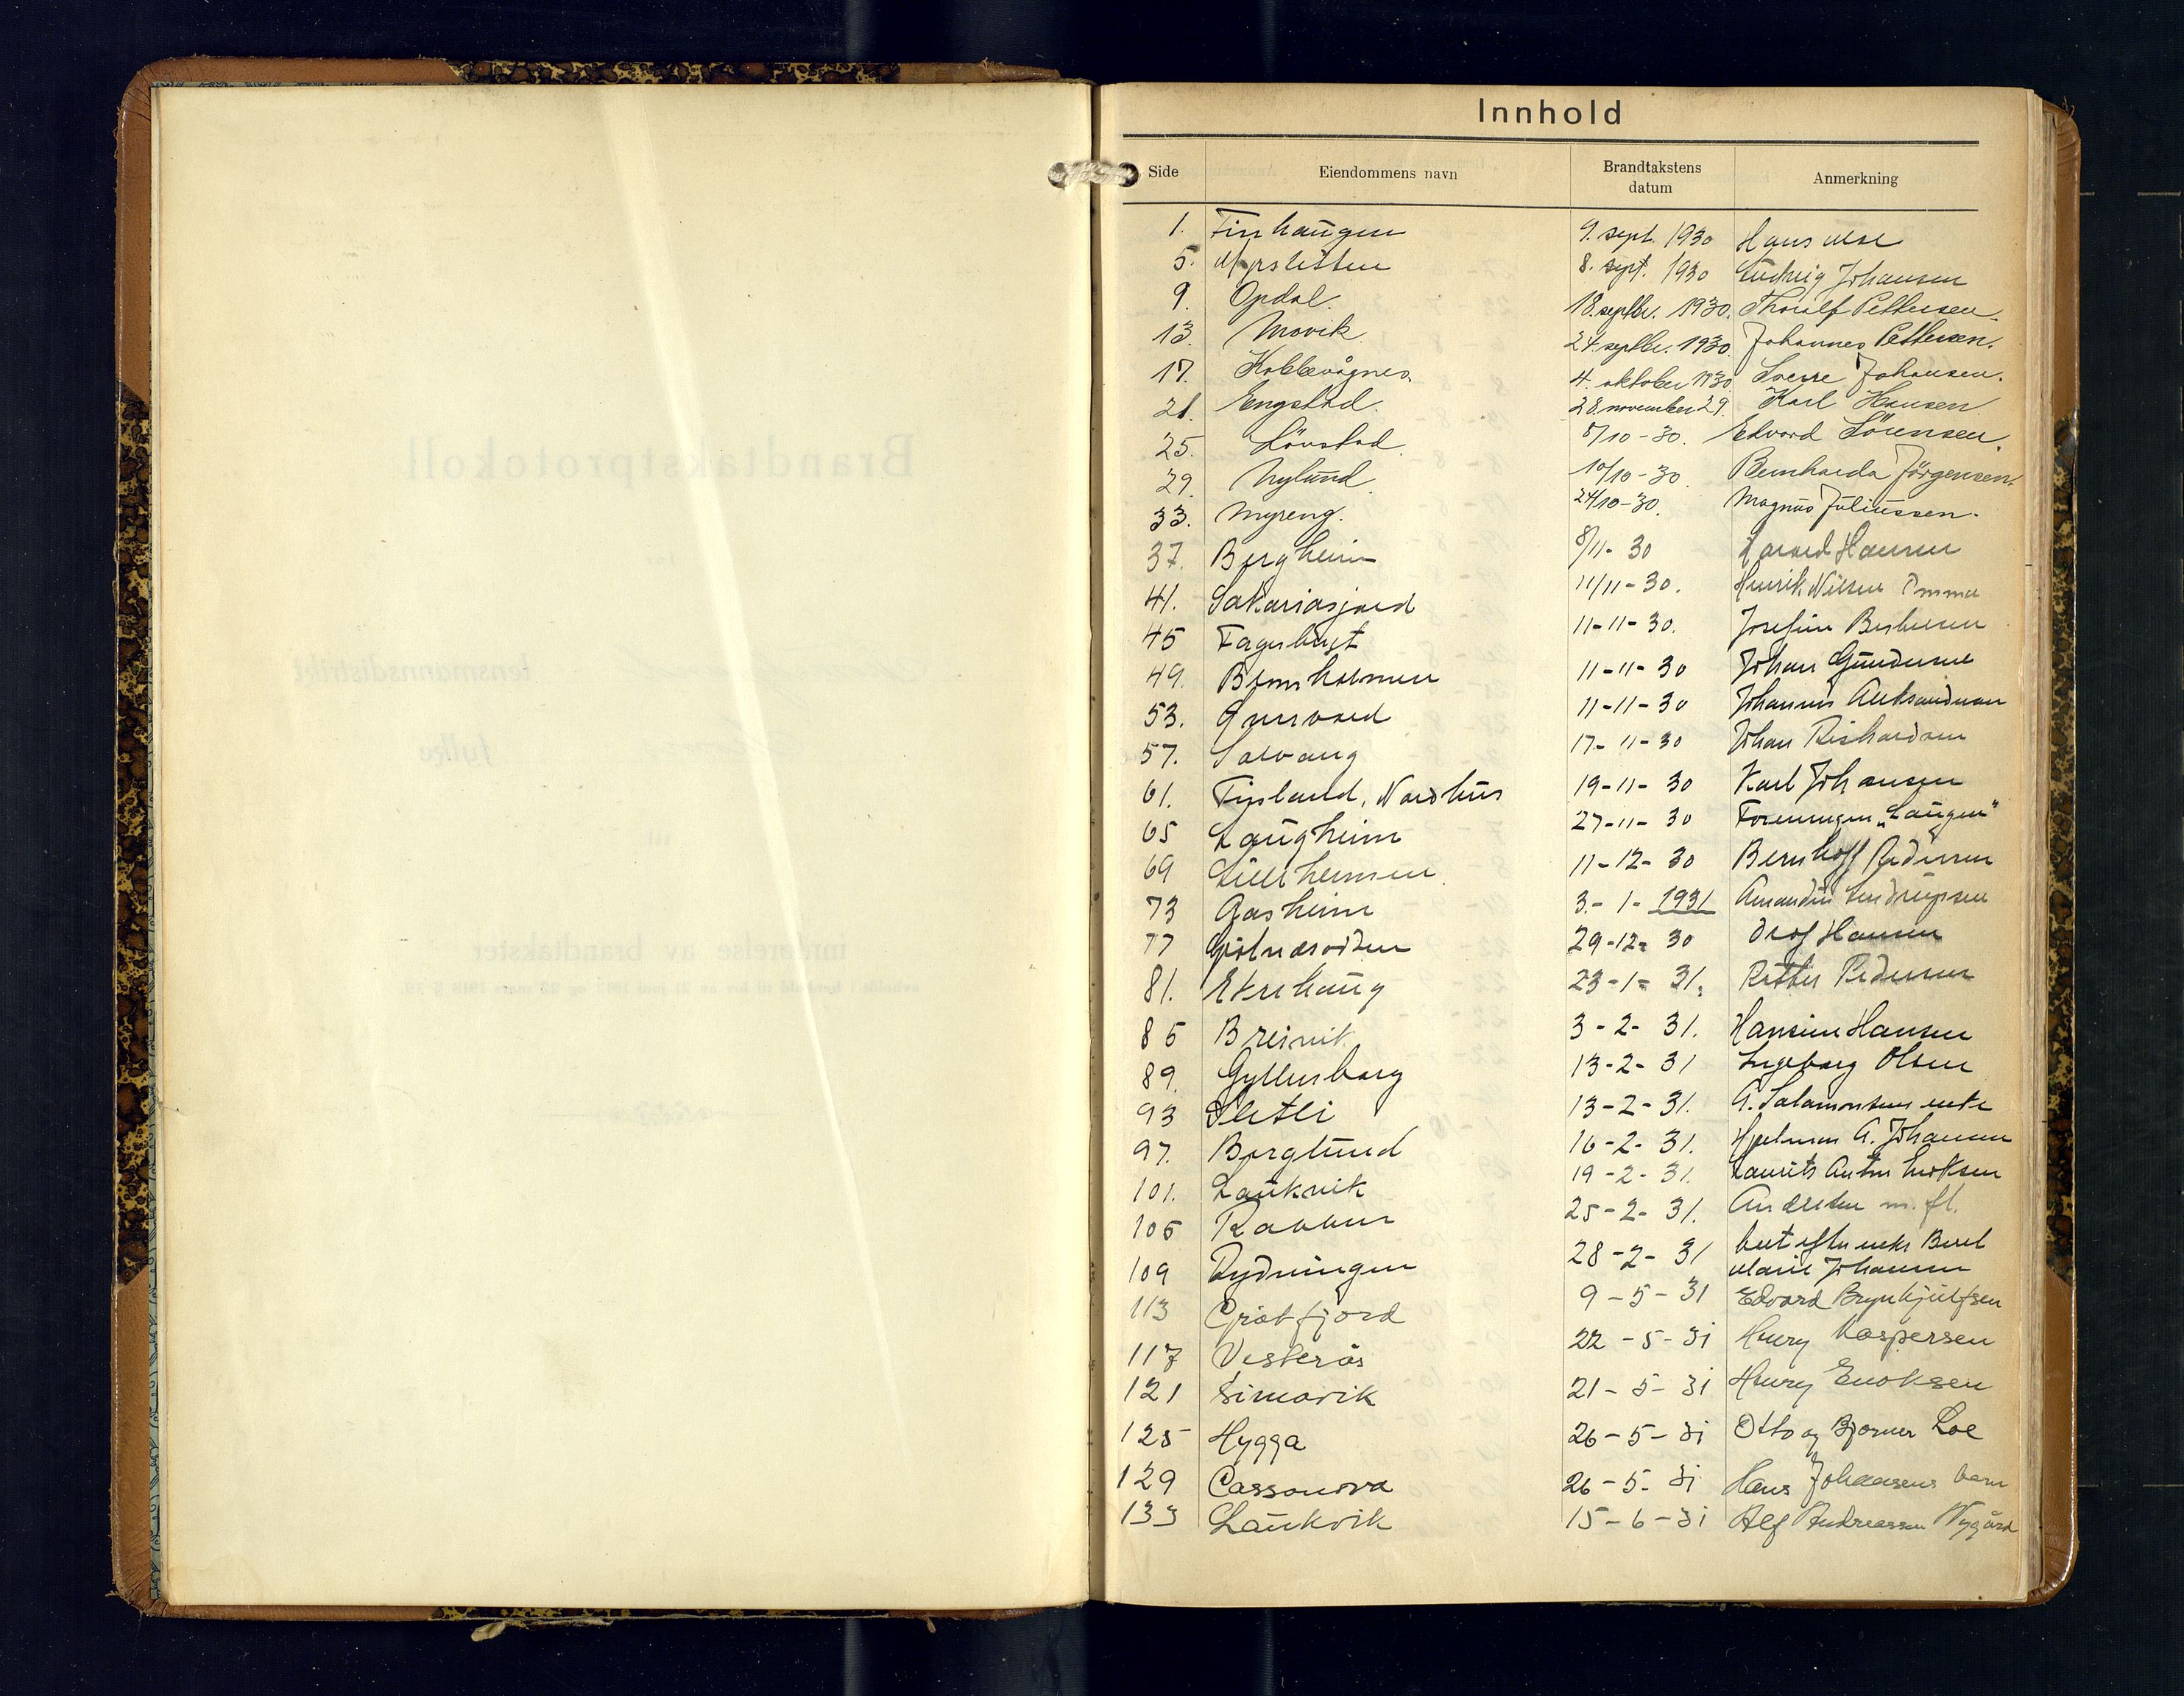 Innhold
Side Eiendommens navn Brandtakstens datum Anmerkning
1. Finhaugen 9. sept. 1930 Hans
5. 8. sept. 1930 Ludvig Johansen
9. Opdal. 18. septbr. 1930. Thoralf Pettersen.
13. Movik. 24. septbr. 1930. Johannes Pettersen.
17. Kobbevågnes. 4. oktober 1930 Sverre Johansen.
21. Engstad. 28 november 29. Karl Hansen.
25. Lövstad. 8/10-30. Edvard Sörensen.
29. Nylund. 10/10-30. Bernharda Jörgensen.
33. Myreng. 24/10-30. Magnus Juliussen.
37. Bergheim 8/11-30 Hansen
41. Sakariasjord 11/11-30. Henrik Nilsen
45 Fagerbugt 11-11-30. Josefine
49. Bornholmen 11-11-30 Johan Gundersen
53. Grunvold 11-11-30 Johannes Aleksandersen
57. Solvang 17-11-30 Johan Richardsen
61. Finland, Nordhus 19-11-30 Karl Johansen
65 Laugheim 27-11-30 Foreningen „Laugen"
69 11-12-30 Bernhoff Pedersen
73 Aasheim 3.-1-1931
77 29-12-30 Olaf Hansen
81. Ekrehaug 23-1-31. Petter Pedersen
85 Breivik 3-2-31. Hansine Hansen
89. Gyllenborg 13-2-31 Ingeborg Olsen
93 Sletli 13-2-31. A. Salamonsens enke
97. Berglund 16-2-31. Hjelmar A. Johansen
101. Laukvik 19-2-31. Laurits Anton Eriksen
105 25-2-31. m. fl.
109 Rydningen 28-2-31 Berel
Marie Johansen
113 Grötfjord 9-5-31 Edvard Brynhjulfsen
117 Vesterås 22-5-31 Henry Kaspersen
121 Simavik 21-5-31 Henry Enoksen
125 Hygga 26-5-31 Otto og Bjarner Loe
129 Cassanova 26-5-31 Hans Johansens barn
133 Laukvik 15-6-31 Alf Andreassen Nygård